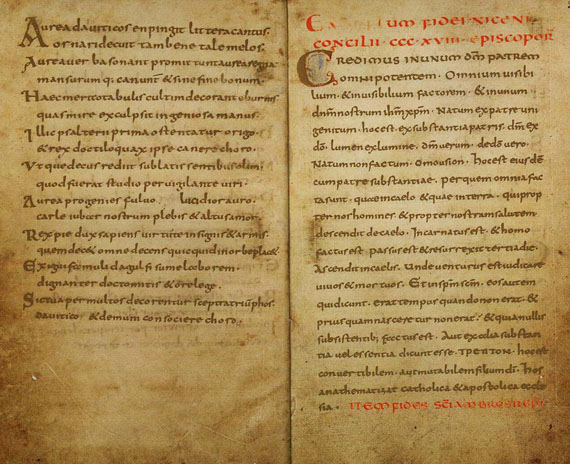 Aurea daviticos en pingit littera cantus.
Ornari decuit tam bene tale melos.
Aurea verba sonant promittunt aurea regna
mansurumq; canunt & sine fine bonum.
Haec merito tabulis cultim decorantur eburnis
quas mire exculpsit ingeniosa manus.
Illic psalterii prima ostentatur origo
& rex doctiloquax ipse canere choro.
Utque decus rediit sublatis sentibus olim
quod fuerat studio pervigilante viri.
Aurea progenies fulvo lucidior auro.
carle iubar nostrum plebis & altus amor.
Rex pie dux sapiens virtute insignis & armis.
quem dec& omne decens quicquid in orbe plac&
Exigui famuli dagulfi sume laborem.
dignanter docto mitis & ore lege.
Sic tua per multos decorentur sceptra triumphos.
davitico & demum consociere choro.
um fidei niceni
concilii ccc·xviii· episcoporum
Credimus in unum dm̄ patrem
omnipotentem. Omnium visibi
lium. & invisibilium factorem. & in unum
dnm̄ nostrum ihm̄ xpm̄. Natum ex patre uni
genitum. hoc est. ex substantia patris. dm̄ ex
dō. lumen ex lumine. dm̄ verum. de dō vero.
Natum non factum. Omousion. hoc est eiusdē
cum patre substantiae. per quem omnia fac
ta sunt. quae in caelo & quae in terra. qui prop
ter nos homines & propter nostram salutem
descendit de caelo. Incarnatus est. & homo
factus est. passus est & resurrexit tertia die.
Ascendit in caelis. Unde venturus est iudicare
vivos & mortuos. Et in spm̄ scm̄. eos autem
qui dicunt. erat tempus quando non erat. &
prius quam nasceretur non erat. & quia nullis
subsistentib; factus est. Aut ex alia substan
tia vel essentia dicunt esse. ΤΡΕΠΤΟΝ. hoc est
convertibilem. aut mutabilem filium dī. Hos
anathematizat catholica & apostolica eccle
sia. Item fides scī ambrosii